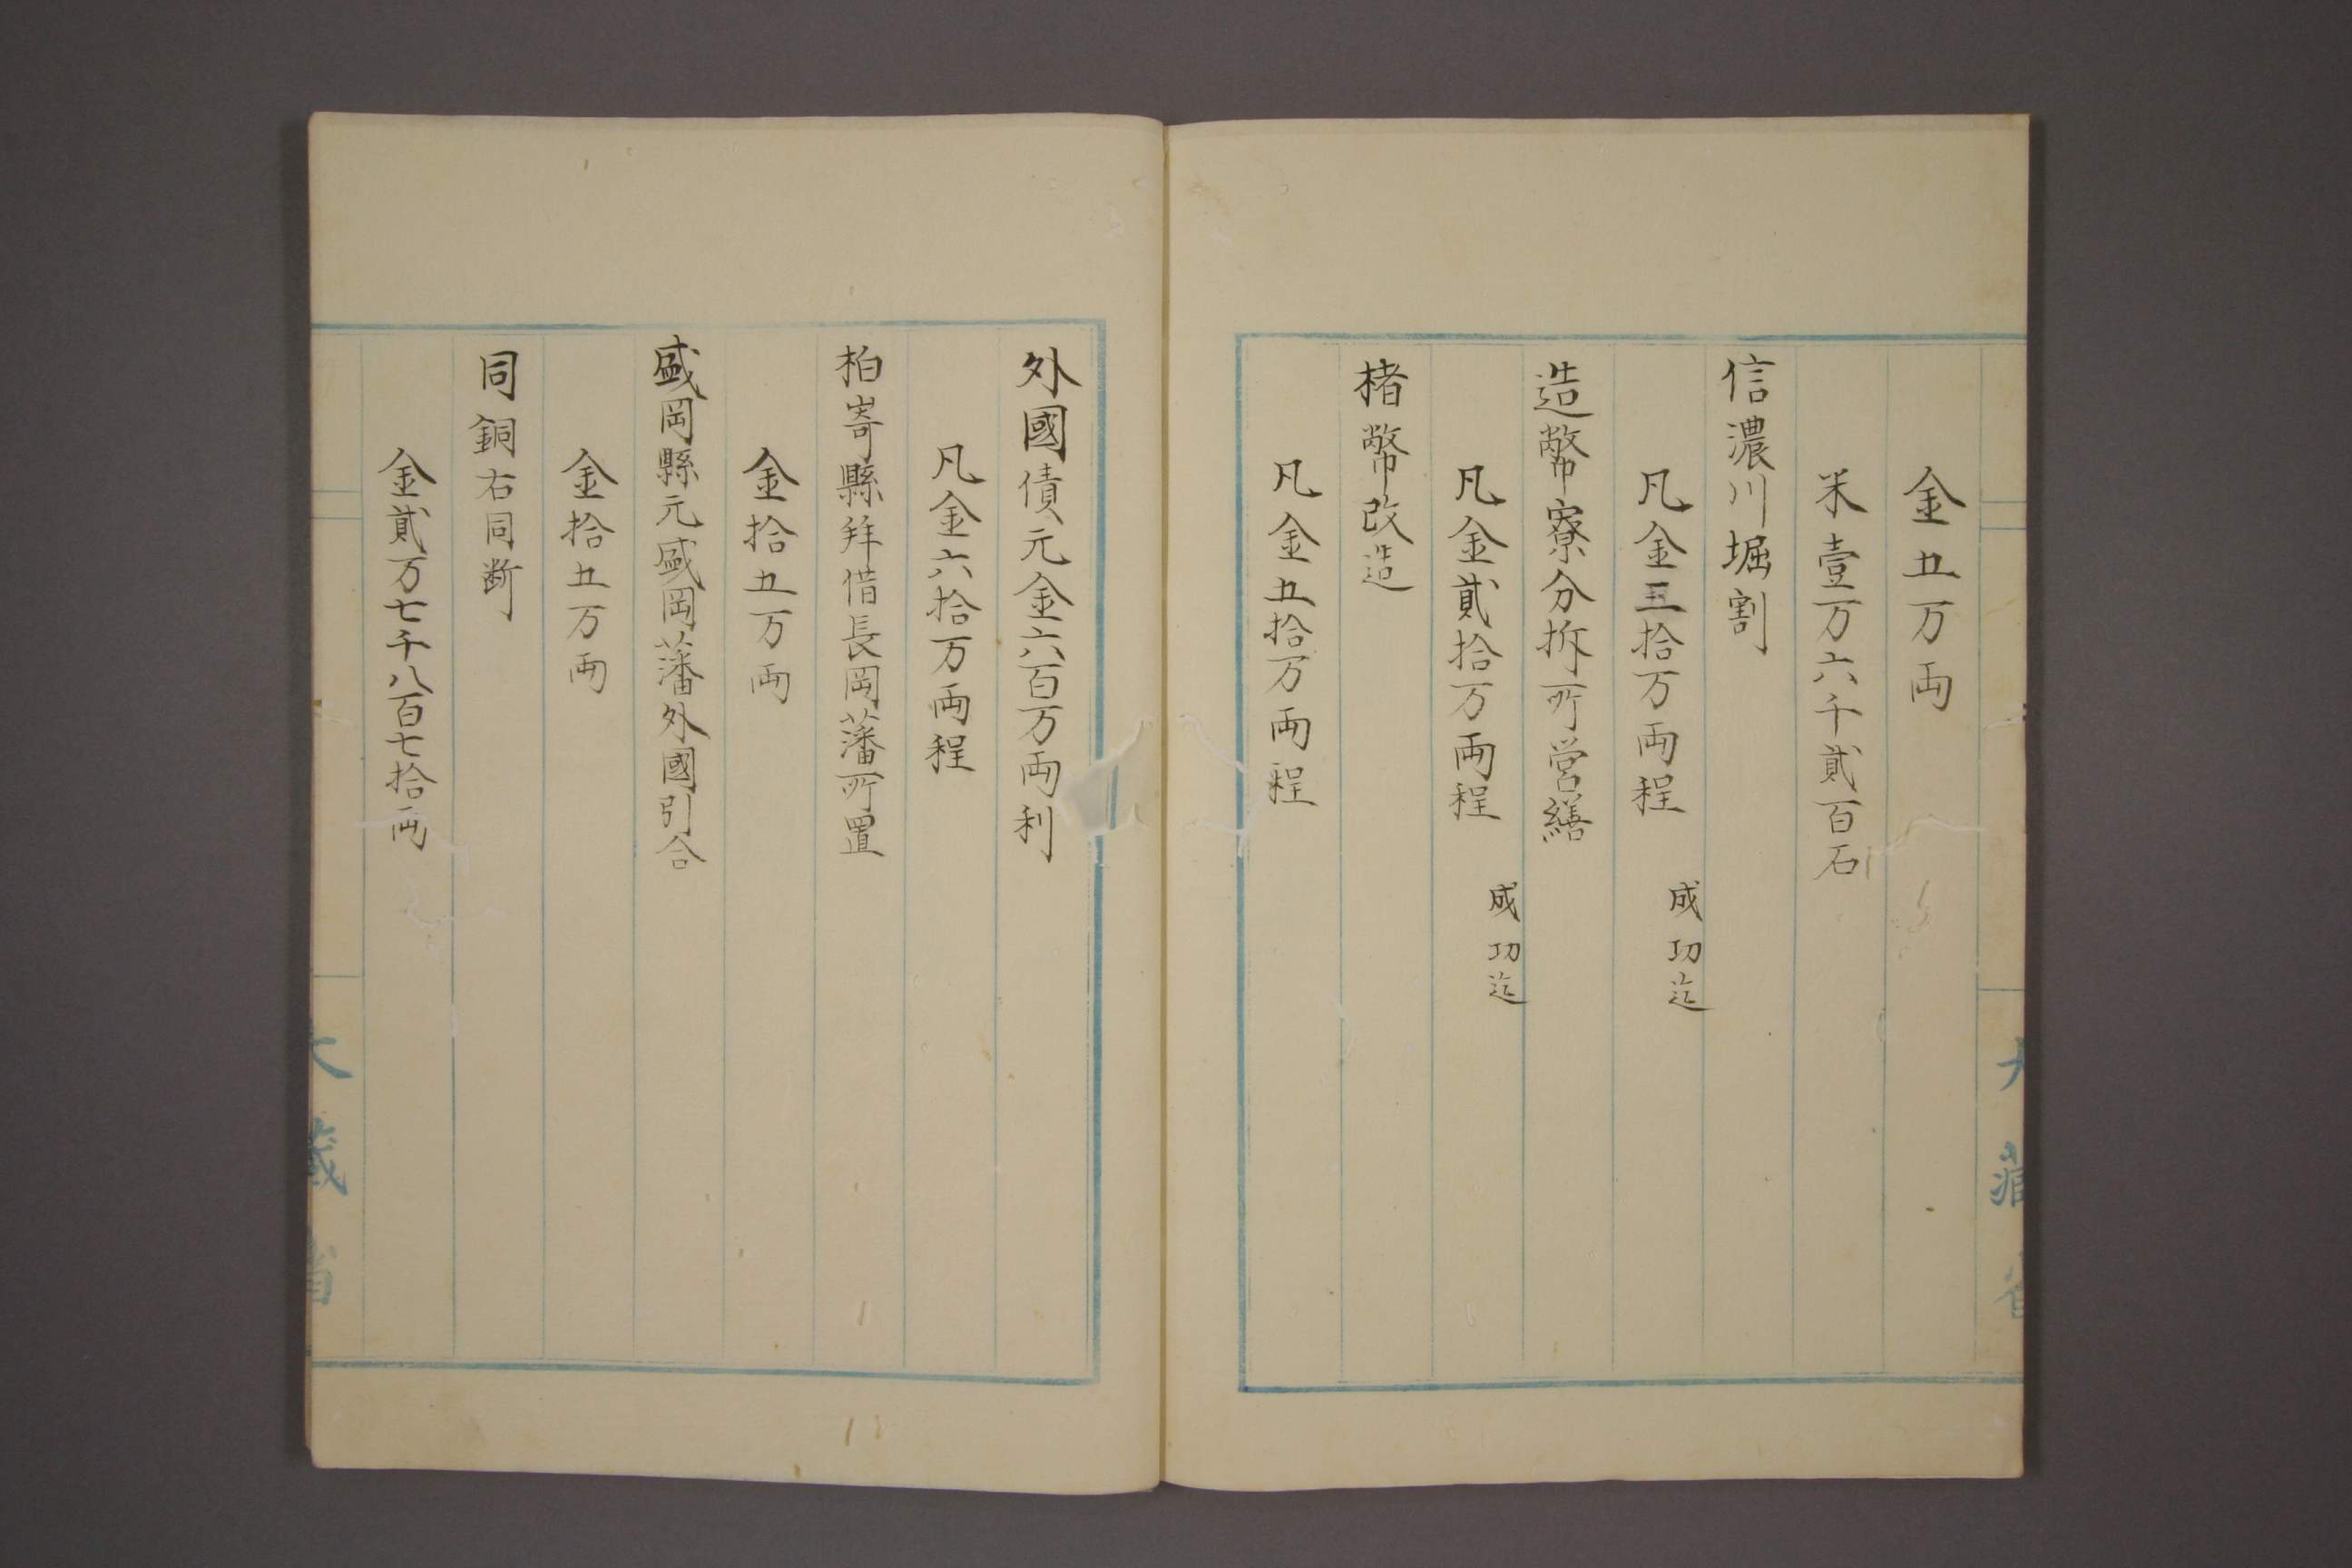 金五万両
米壹万六千貳百石
信濃川堀割
凡金三拾万両程 成功迄
造幣寮分拆所営繕
凡金貳拾万両程 成功迄
楮幣改造
凡金五拾万両程
外國債元金六百万両利
凡金六拾万両程
柏嵜縣拜借長岡藩所置
金拾五万両
盛岡縣元盛岡藩外國引合
金拾五万両
同銅右同断
金貳万七千八百七拾両
大藏省